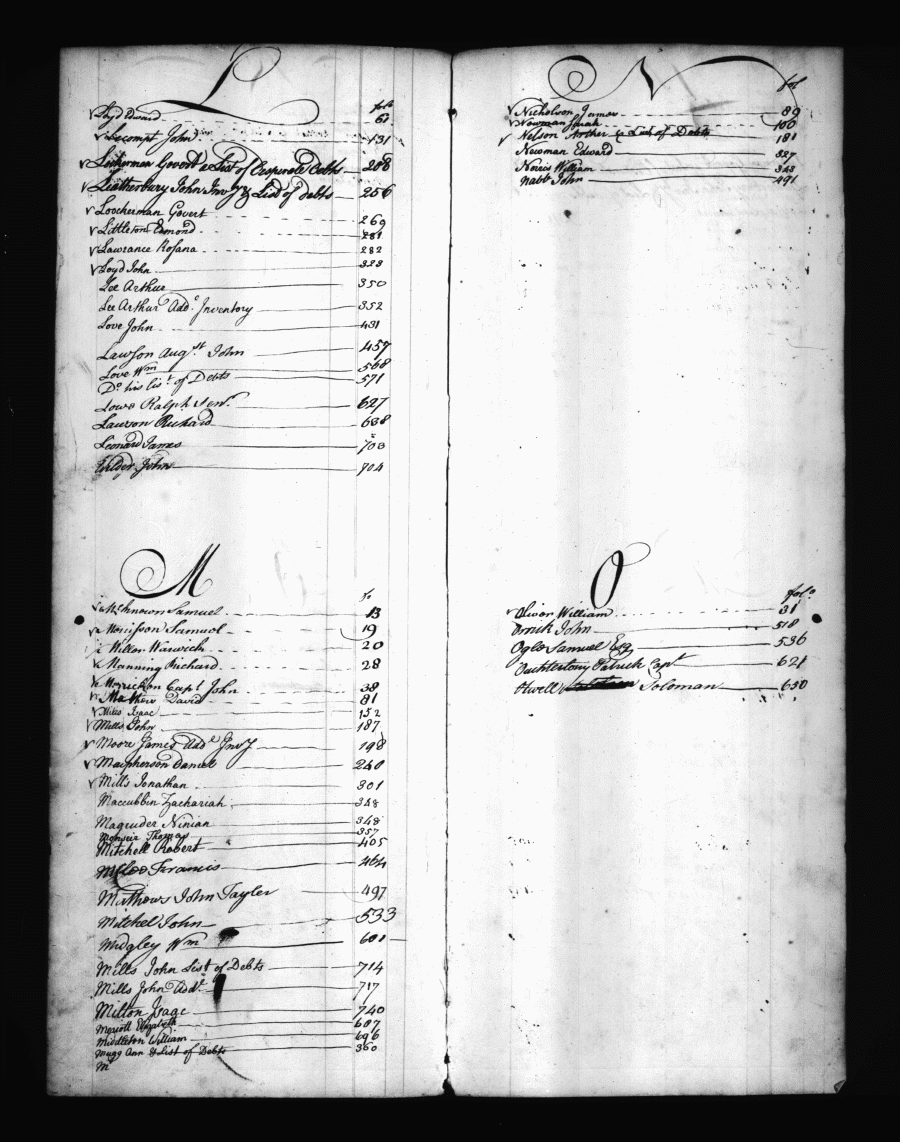 L
fol.
Loyd Edward 61
Lecompt John 131
Govert a List of Desperate Debts 208
Leatherbury John Invy & List of debts 256
Loockerman Govert 269
Littleton Edmond 281
Lawrance Rosana 282
Loyd John 323
Lee Arthur 350
Lee Arthur Add. Inventory 352
Love John 431
Lawson Augst. John 457
Love Wm 568
Do his List of Debts 571
Lowe Ralph Senr. 627
Lawson Richard 638
Leonard James 703
John 704
M
fo
Samuel 13
Samuel 19
Miller Warwick 20
Manning Richard 28
Capt. John 38
Mathew David 81
Miles Isaac 152
Mills John 187
Moore James Adde. Invy 198
Macpherson Daniel 240
Mills Jonathan 301
Maccubbin Zachariah 348
Magruder Ninian 348
Thomas 357
Mitchell Robert 405
Francis 464
Mathews John Tayler 497
Mitchel John 533
Midgley Wm 601
Mills John List of Debts 714
Mills John Addl. 717
Milton Isaac 740
Mariott Elizabeth 607
Middleton William 696
Mugg Ann & List of Debts 360
M
N
fol
Nicholson James 89
Newman 100
Nelson Arther & List of Debts 181
Newman Edward 327
Norris William 343
Nabb John 491
O
folo.
Olivor William 31
Orrick John 518
Ogle Samuel Esq. 536
Ouchterlony Patrick Capt 621
Otwell Soloman 650